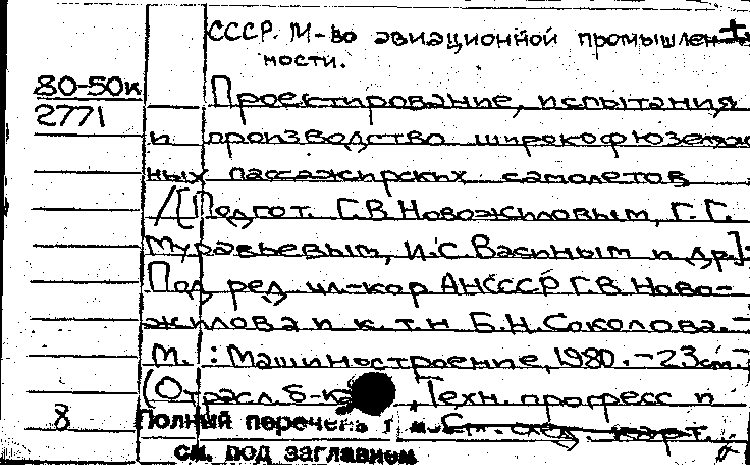 СССР. М-во авиационной промышлен-
ности.
80-50к
2771
Проектирование, испытания
и производство широкофюзеляж
ных пассажирских самолетов
/[Подгот. Г.В. Новожиловым, Г.Г.
Муравьевым, И.С. Васиным и др.]:
Под ред чл-кор АНСССР Г.В. Ново-
жилова и к.т.н Б.Н. Соколова. -
М. : Машиностроение, 1980. - 23см. -
(Отрасл. б-ка , Техн. прогресс и
8
Полный перечень См. след. карт.
см. под заглавием